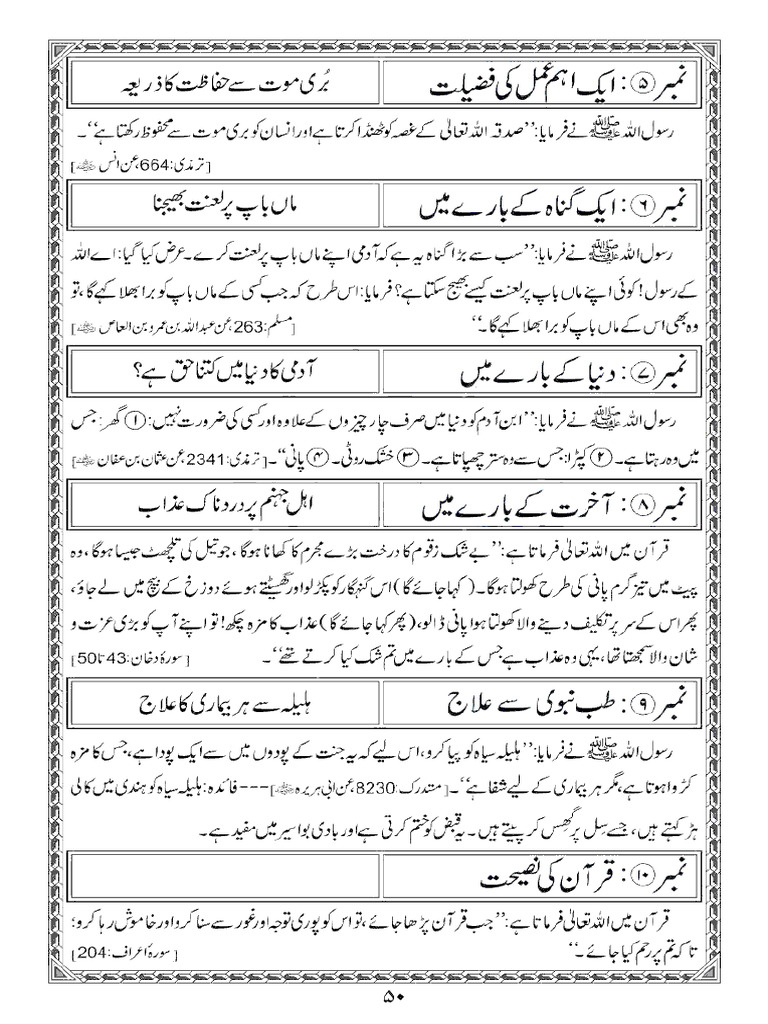 نمبر ⑤: ایک اہم عمل کی فضیلت بُری موت سے حفاظت کا ذریعہ
رسول اللہ ﷺ نے فرمایا: ’’صدقہ اللہ تعالیٰ کے غصہ کو ٹھنڈا کرتا ہے اور انسان کو بری موت سے محفوظ رکھتا ہے‘‘۔
[ترمذی:664، عن انس ؓ]
نمبر ⑥: ایک گناہ کے بارے میں ماں باپ پر لعنت بھیجنا
رسول اللہ ﷺ نے فرمایا: ’’سب سے بڑا گناہ یہ ہے کہ آدمی اپنے ماں باپ پر لعنت کرے۔ عرض کیا گیا: اے اللہ
کے رسول! کوئی اپنے ماں باپ پر لعنت کیسے بھیج سکتا ہے؟ فرمایا: اس طرح کہ جب کسی کے ماں باپ کو برا بھلا کہے گا، تو
وہ بھی اس کے ماں باپ کو برا بھلا کہے گا۔‘‘ [مسلم:263، عن عبد اللہ بن عمرو بن العاص ؓ]
نمبر ⑦: دنیا کے بارے میں آدمی کا دنیا میں کتنا حق ہے؟
رسول اللہ ﷺ نے فرمایا: ’’ابن آدم کو دنیا میں صرف چار چیزوں کے علاوہ اور کسی کی ضرورت نہیں: ① گھر: جس
میں وہ رہتا ہے۔ ② کپڑا: جس سے وہ ستر چھپاتا ہے۔ ③ خشک روٹی۔ ④ پانی‘‘۔ [ترمذی:2341، عن عثمان بن عفان ؓ]
نمبر ⑧: آخرت کے بارے میں اہل جہنم پر دردناک عذاب
قرآن میں اللہ تعالیٰ فرماتا ہے: ’’بے شک زقوم کا درخت بڑے مجرم کا کھانا ہوگا، جو تیل کی تلچھٹ جیسا ہوگا، وہ
پیٹ میں تیز گرم پانی کی طرح کھولتا ہوگا۔ (کہا جائے گا) اس گنہگار کو پکڑلو اور گھسیٹتے ہوئے دوزخ کے بیچ میں لے جاؤ،
پھر اس کے سر پر تکلیف دینے والا کھولتا ہوا پانی ڈالو، (پھر کہا جائے گا) عذاب کا مزہ چکھ! تو اپنے آپ کو بڑی عزت و
شان والا سمجھتا تھا، یہی وہ عذاب ہے جس کے بارے میں تم شک کیا کرتے تھے‘‘۔ [سورۂ دخان:43 تا 50]
نمبر ⑨: طب نبوی سے علاج ہلیلہ سے ہر بیماری کا علاج
رسول اللہ ﷺ نے فرمایا: ’’ہلیلہ سیاہ کو پیا کرو، اس لیے کہ یہ جنت کے پودوں میں سے ایک پودا ہے، جس کا مزہ
کڑوا ہوتا ہے، مگر ہر بیماری کے لیے شفا ہے‘‘۔ [متدرک:8230، عن ابی ہریرہ ؓ] --- فائدہ: ہلیلہ سیاہ کو ہندی میں کالی
ہڑ کہتے ہیں، جسے سِل پر گھِس کر پیتے ہیں۔ یہ قبض کو ختم کرتی ہے اور بادی بواسیر میں مفید ہے۔
نمبر ⑩: قرآن کی نصیحت
قرآن میں اللہ تعالیٰ فرماتا ہے: ’’جب قرآن پڑھا جائے، تو اس کو پوری توجہ اور غور سے سنا کرو اور خاموش رہا کرو؛
تاکہ تم پر رحم کیا جائے۔‘‘ [سورۂ اعراف:204]
۵۰